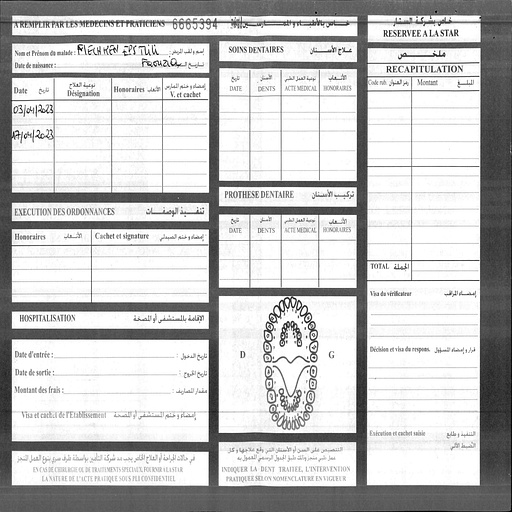 A REMPLIR PAR LES MEDECINS ET PRATICIENS 6665394 خاص بالأطباء و الممارسين
Nom et Prénom du malade : إسم ولقب المريض
Date de naissance : FAOUZIA
Date تاريخ نوعية العلاج Désignation Honoraires الأتعاب إمضاء و ختم الممارس V. et cachet
03/04/2023
17/04/2023
EXECUTION DES ORDONNANCES تنفيذ الوصفات
Honoraires الأتعاب Cachet et signature إمضاء و ختم الصيدلي
HOSPITALISATION الإقامة بالمستشفى أو المصحة
Date d'entrée : تاريخ الدخول :
Date de sortie : تاريخ الخروج :
Montant des frais : مقدار المصاريف :
Visa et cachet de l'Etablissement إمضاء و ختم المستشفى أو المصحة
EN CAS DE CHIRURGIE OU DE TRAITEMENTS SPECIAUX, FOURNIR A LA STAR
LA NATURE DE L'ACTE PRATIQUE SOUS PLI CONFIDENTIEL
SOINS DENTAIRES علاج الأسنان
تاريخ DATE الأسنان DENTS نوعية العمل الطبي ACTE MEDICAL الأتعاب HONORAIRES
PROTHESE DENTAIRE تركيب الأسنان
تاريخ DATE الأسنان DENTS نوعية العمل الطبي ACTE MEDICAL الأتعاب HONORAIRES
D G
INDIQUER LA DENT TRAITEE, L'INTERVENTION
PRATIQUEE SELON NOMENCLATURE EN VIGUEUR
خاص بشركة الستار
RESERVEE A LA STAR
ملخص
RECAPITULATION
Code rub. رمز العنوان Montant المبلغ
TOTAL الجملة
Visa du vérificateur إمضاء المراقب
Décision et visa du respons. قرار و إمضاء المسؤول
Exécution et cachet saisie التنفيذ و طابع
الضبط الآلي